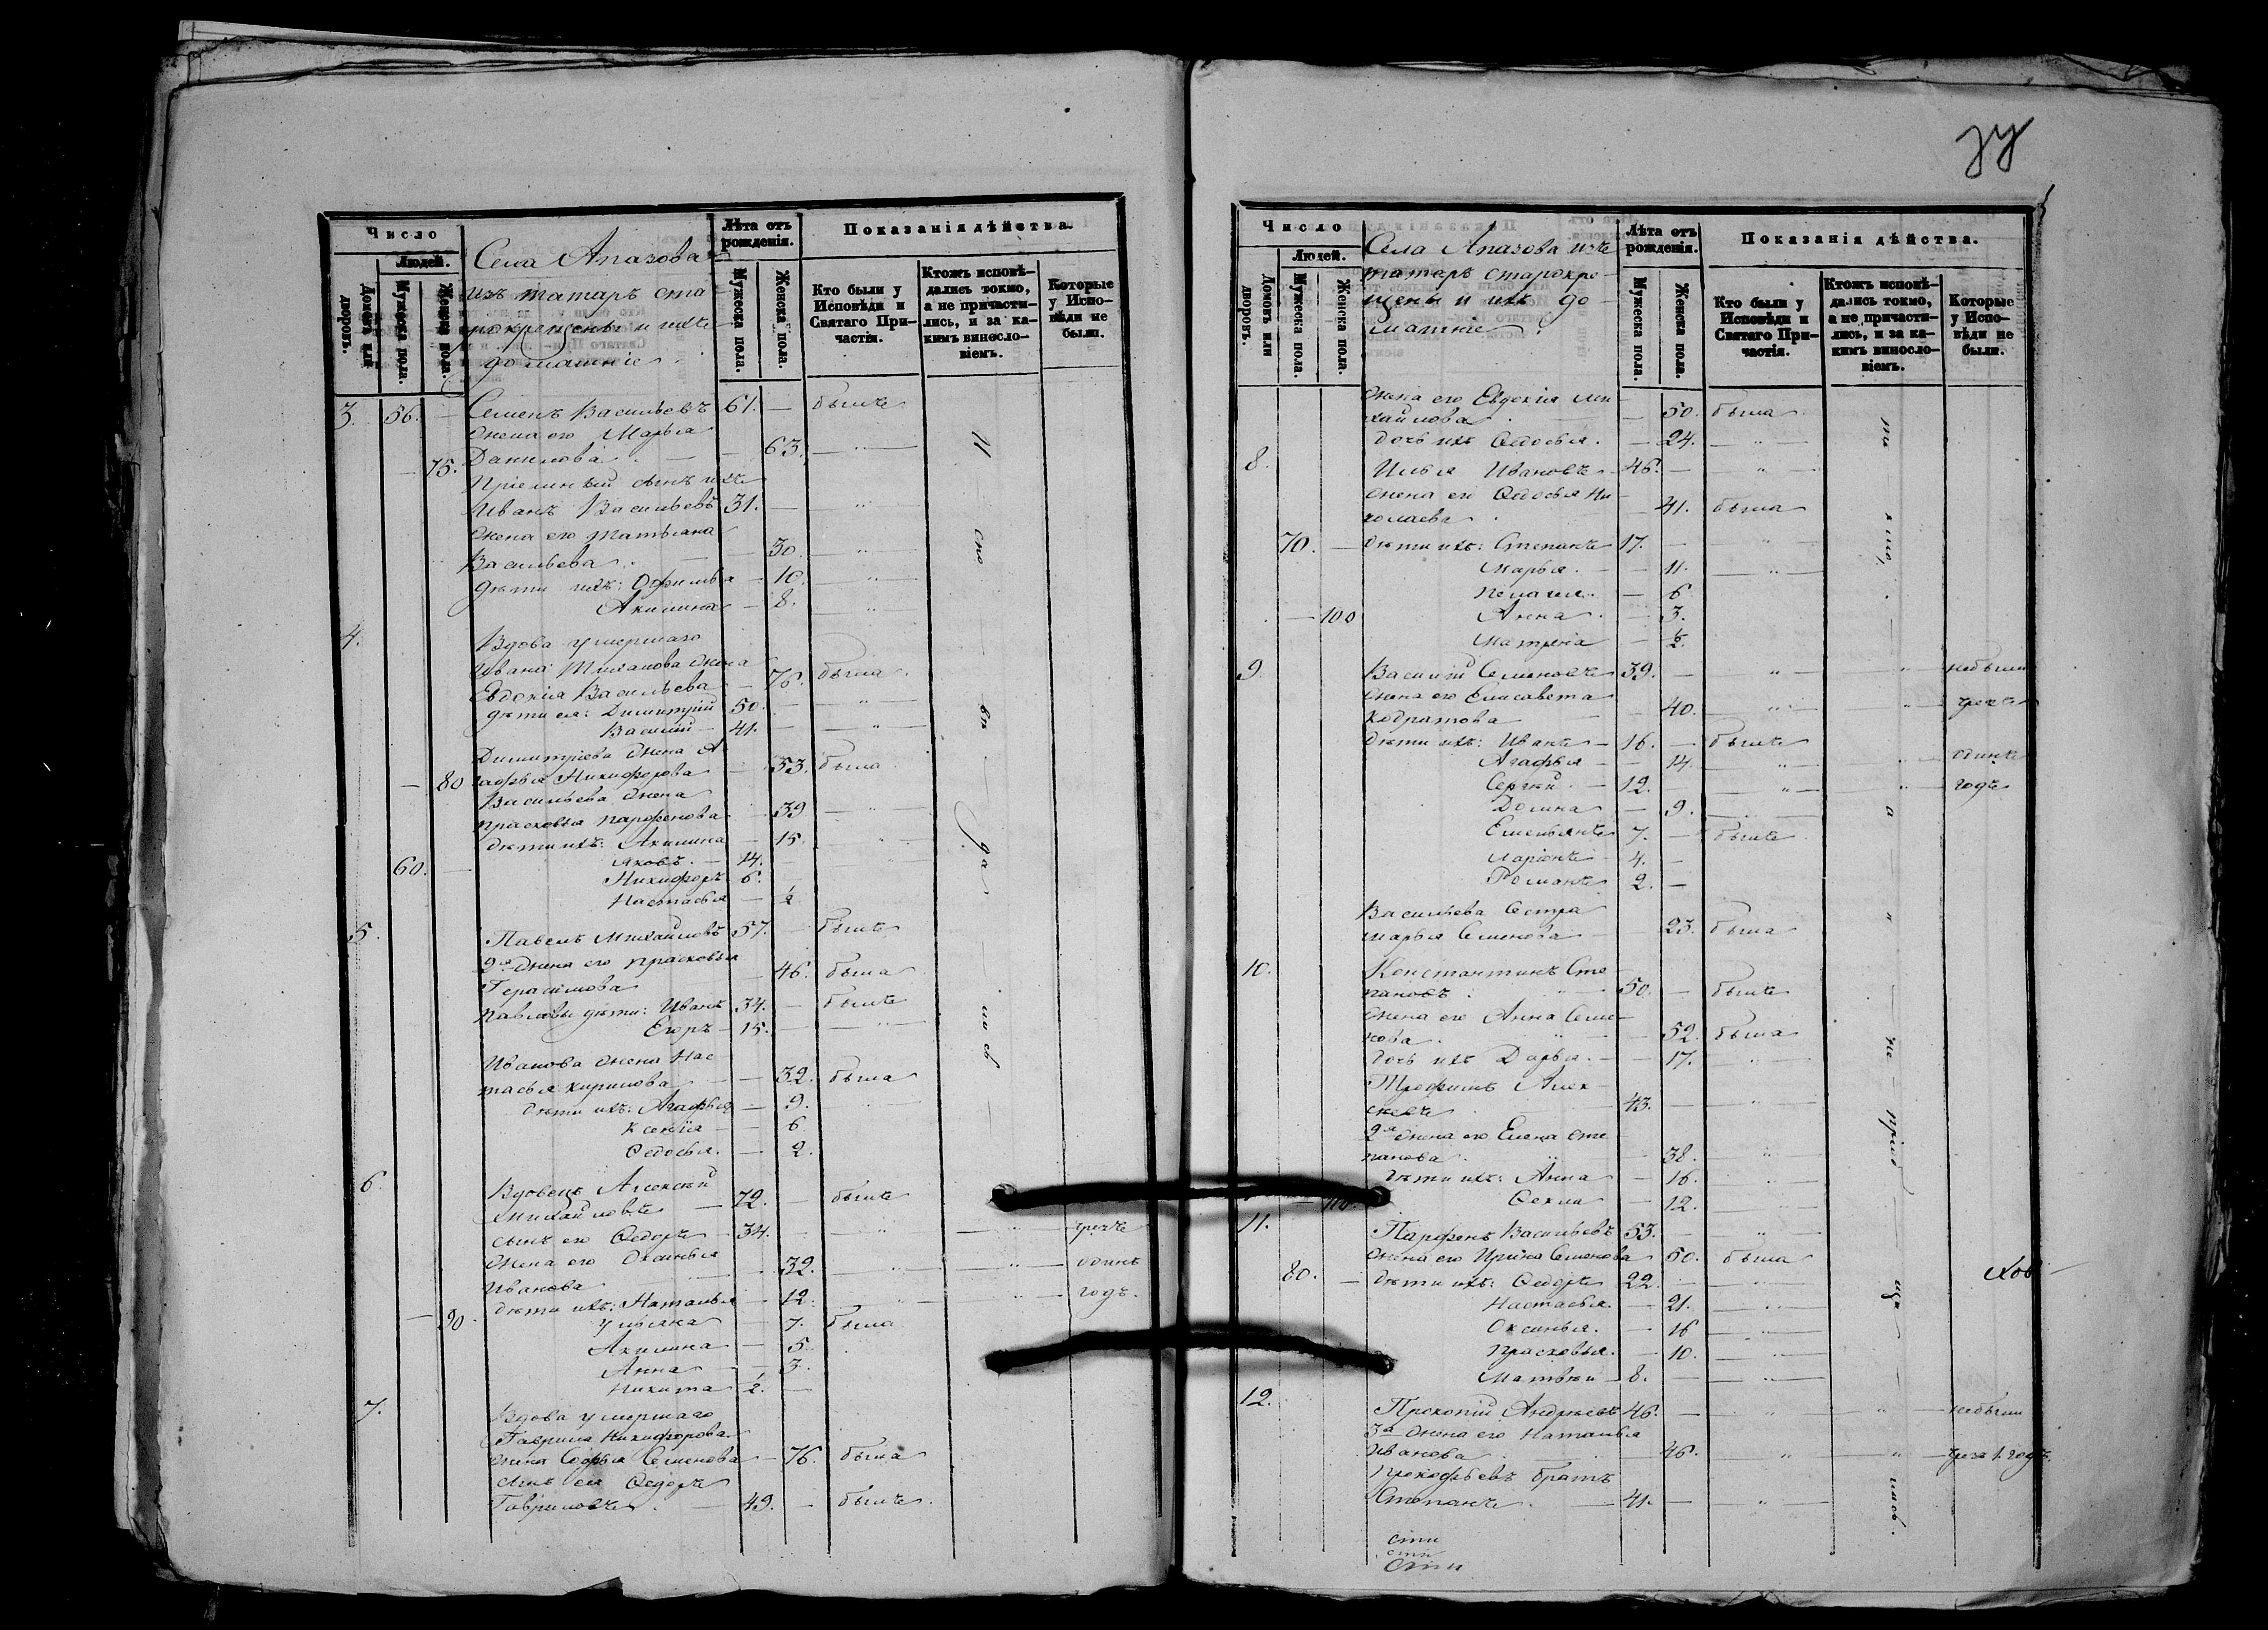 Число
Людей.
Домовъ или дворовъ.
Мужеска пола.
Женска пола.
Села Апазова
изъ татаръ ста-
рокрещены и ихъ
домашніе.
Лѣта отъ рожденія.
Мужеска пола.
Женска пола.
Показанія дѣйства.
Кто были у Исповѣди и Святаго При-частія.
Ктожъ исповѣ-дались токмо, а не причасти-лись, и за ка-кимъ винесло-віемъ.
Которые у Испо-вѣди не были.
3. 56. — Семенъ Васильевъ 61. — былъ
Жена его Марья
— 75. Данилова. — — 63. — „ —
Пріемный сынъ ихъ
Иванъ Васильевъ 31. — „ —
Жена его Татьяна
Васильева. — — 30. — „ —
Дѣти ихъ: Офимья — 10. — „ —
Акилина — 8. „
4. Вдова умершаго
Ивана жена
Евдокія Васильева — 76. была
дѣти ея: Димитрій 50. — „ —
Василій — 41. — „ —
Димитріева жена А-
— 80 гафья Никифорова — 53. была
Васильева жена
Прасковья Парфенова — 39 — „ —
Дѣти ихъ: Акилина — 15. „
60. — Яковъ. — 14. — „
Никифоръ 6. —
Настасья — ½
5. Павелъ Михайловъ 57. — былъ
2я Жена его Прасковья
Герасимова — 46. была
Павловы дѣти: Иванъ 34. — былъ
Егоръ — 15. — „ —
Иванова жена Нас-
тасья Кирилова — — 32. была
Дѣти ихъ: Агафья — 9. „
Ксенія — — 6
Федосья. — 2.
6. Вдовецъ Алексѣй
Михайловъ — 72. — былъ
сынъ его Федоръ — 34. — „ — „ — чрезъ
Жена его Оксинья
Иванова — 32. — „ — „ — одинъ
Дѣти ихъ: Наталья — 12. — „ — „ — годъ.
— 90. Ульяна — 7. была
Акилина — 5.
Анна — — 3.
Никита ½. —
7. Вдова умершаго
Гаврила Никифорова
жена Софья Семенова — 76. была
сынъ ея Федоръ
Гавриловъ. — 49. — былъ.
И
спо
вѣ
да
лись
Число
Людей.
Домовъ или дворовъ.
Мужеска пола.
Женска пола.
Села Апазова изъ
татаръ старокре-
щены и ихъ до-
машніе.
Лѣта отъ рожденія.
Мужеска пола.
Женска пола.
Показанія дѣйства.
Кто были у Исповѣди и Святаго При-частія.
Ктожъ исповѣ-дались токмо, а не причасти-лись, и за ка-кимъ винесло-віемъ.
Которые у Испо-вѣди не были.
Жена его Евдокія Ми-
хайлова. — — 50. была
дочь ихъ Федосья. — 24. — „ —
8. Илья Ивановъ 46. — „
Жена его Федосья Ни-
колаева. — 41. была
70. — Дѣти ихъ: Степанъ 17. — „
Марья. — 11. — „ —
Пелагея. — 6
— 100 Анна. — 3.
Матрена — ½.
9 Василій Семеновъ 39. — „ — „ — небыли
Жена его Елисавета
Кодратова — 40. — „ — „ — чрезъ
Дѣти ихъ: Иванъ — 16. — былъ
Агафья — 14. „ „ одинъ
Сергѣй. — 12. — „ — „ — годъ
Домна — 9. — „ —
Емельянъ 7. — былъ
Ларіонъ — 4. —
Романъ 2. —
Васильева Сестра
Марья Семенова — 23. была
10. Константинъ Сте-
пановъ. — „ — 50. — былъ
Жена его Анна Семе-
нова. — „ — 52. была
Дочь ихъ Дарья. — 17. „
Трофимъ Алек-
сѣевъ — 43. — „ —
2я Жена его Елена Сте-
панова. — „ — 38. „
Дѣти ихъ: Анна — 16. „
— 110. Фекла — 12. „
11. Парфенъ Васильевъ 53. — „
Жена его Ирина Семенова 50. была
80. — Дѣти ихъ: Федоръ 22. — „
Настасья. — 21. — „ —
Оксинья. — 16 — „ —
Прасковья. — 10. — „ —
Матвѣй 8. — „ —
12. Прокопій Андреевъ 46. — „ — „ — небыли
3я Жена его Наталья
Иванова — 46. — „ — „ — чрезъ 1. годъ.
Прокофьевъ братъ
Степанъ. — 41. — „ —
ть
кмо,
а
не
пріоб
ща
лись.
сти
сти
Сти